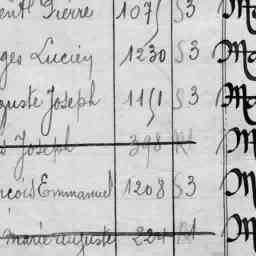 Pierre 1075 S3 M
ges Lucien 1230 S3 M
guste Joseph 1151 S3 M
Joseph 398 M
rcois Emmanuel 1208 S3 M
Marie auguste 224 M